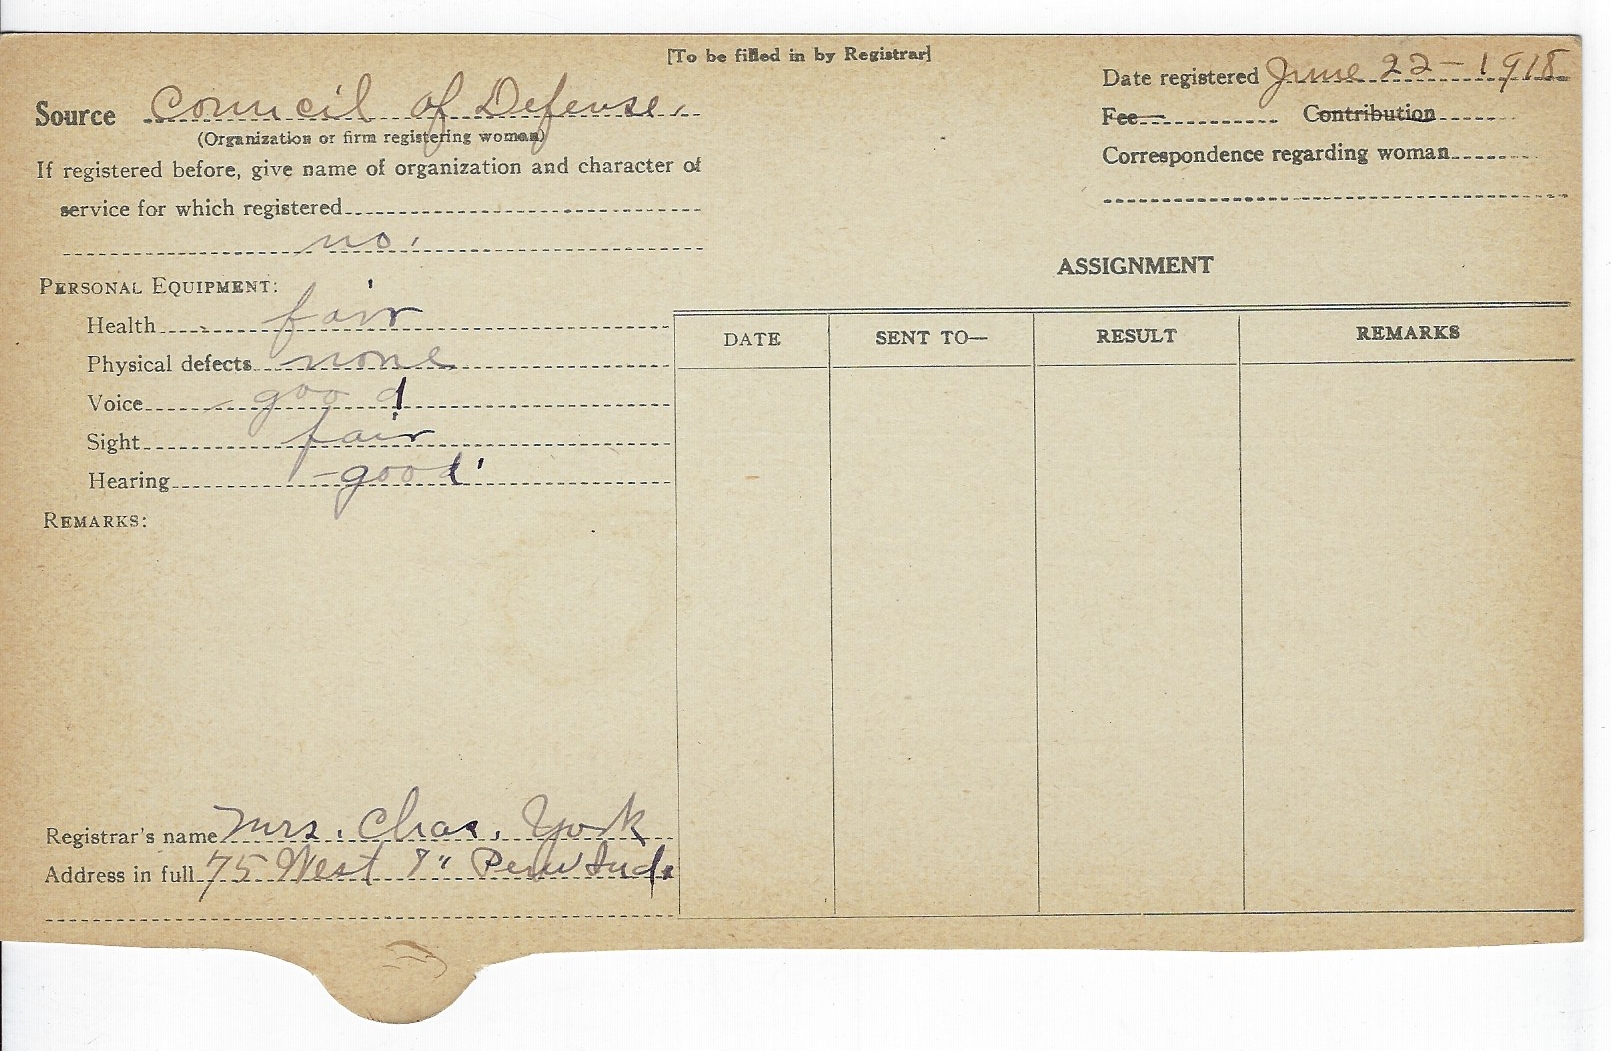 [To be filled in by Registrar]
Source Council of Defense.
(Organization or firm registering woman)
If registered before, give name of organization and character of
service for which registered
no.
PERSONAL EQUIPMENT:
Health fair
Physical defects none
Voice good
Sight fair
Hearing good
REMARKS:
Registrar's name Mrs. Chas. York
Address in full 75 West 7" Peru Ind.
Date registered June 22-1918
Fee Contribution
Correspondence regarding woman
ASSIGNMENT
DATE SENT TO— RESULT REMARKS